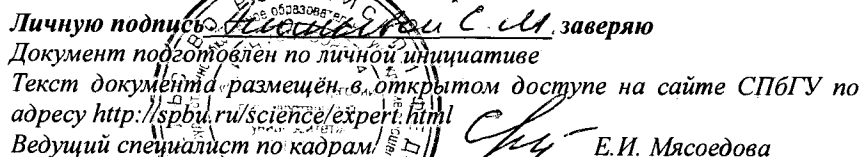 Личную подпись С. М. заверяю
Документ подготовлен по личной инициативе
Текст документа размещён в открытом доступе на сайте СПбГУ по
адресу http://spbu.ru/science/expert.html
Ведущий специалист по кадрам Е.И. Мясоедова